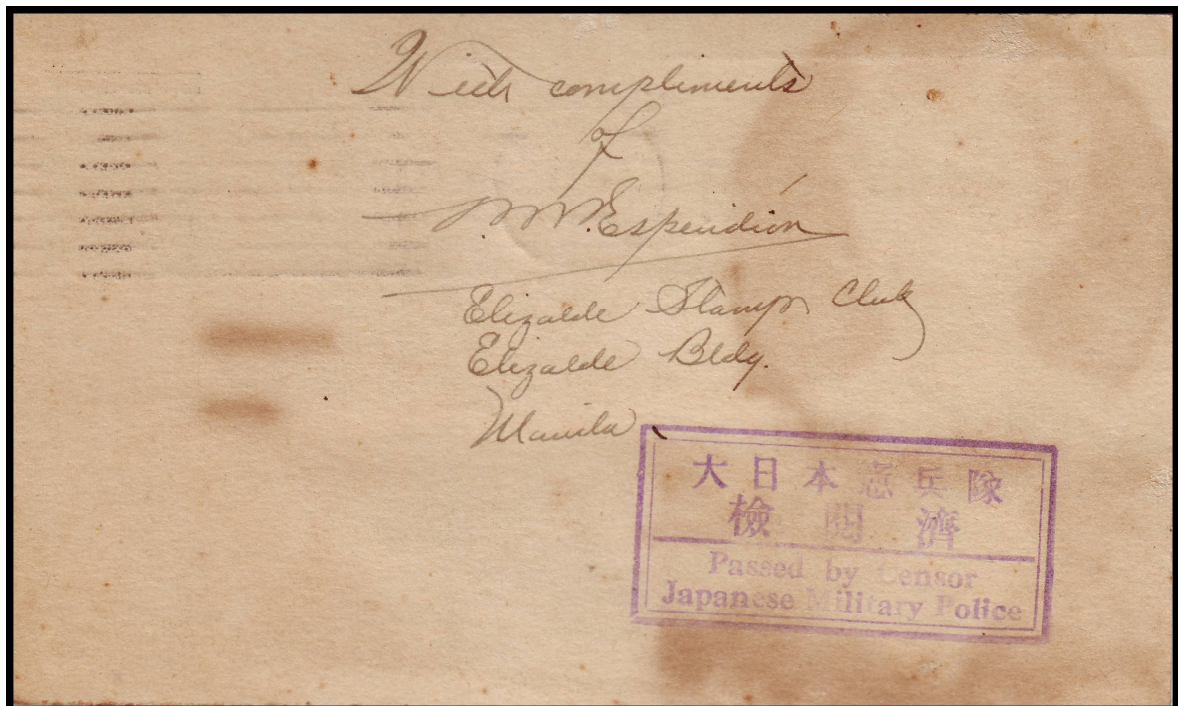 With compliments
of
Espiridión
Elizalde Stamp Club
Elizalde Bldg.
Manila
大日本憲兵隊
檢閲濟
Passed by Censor
Japanese Military Police